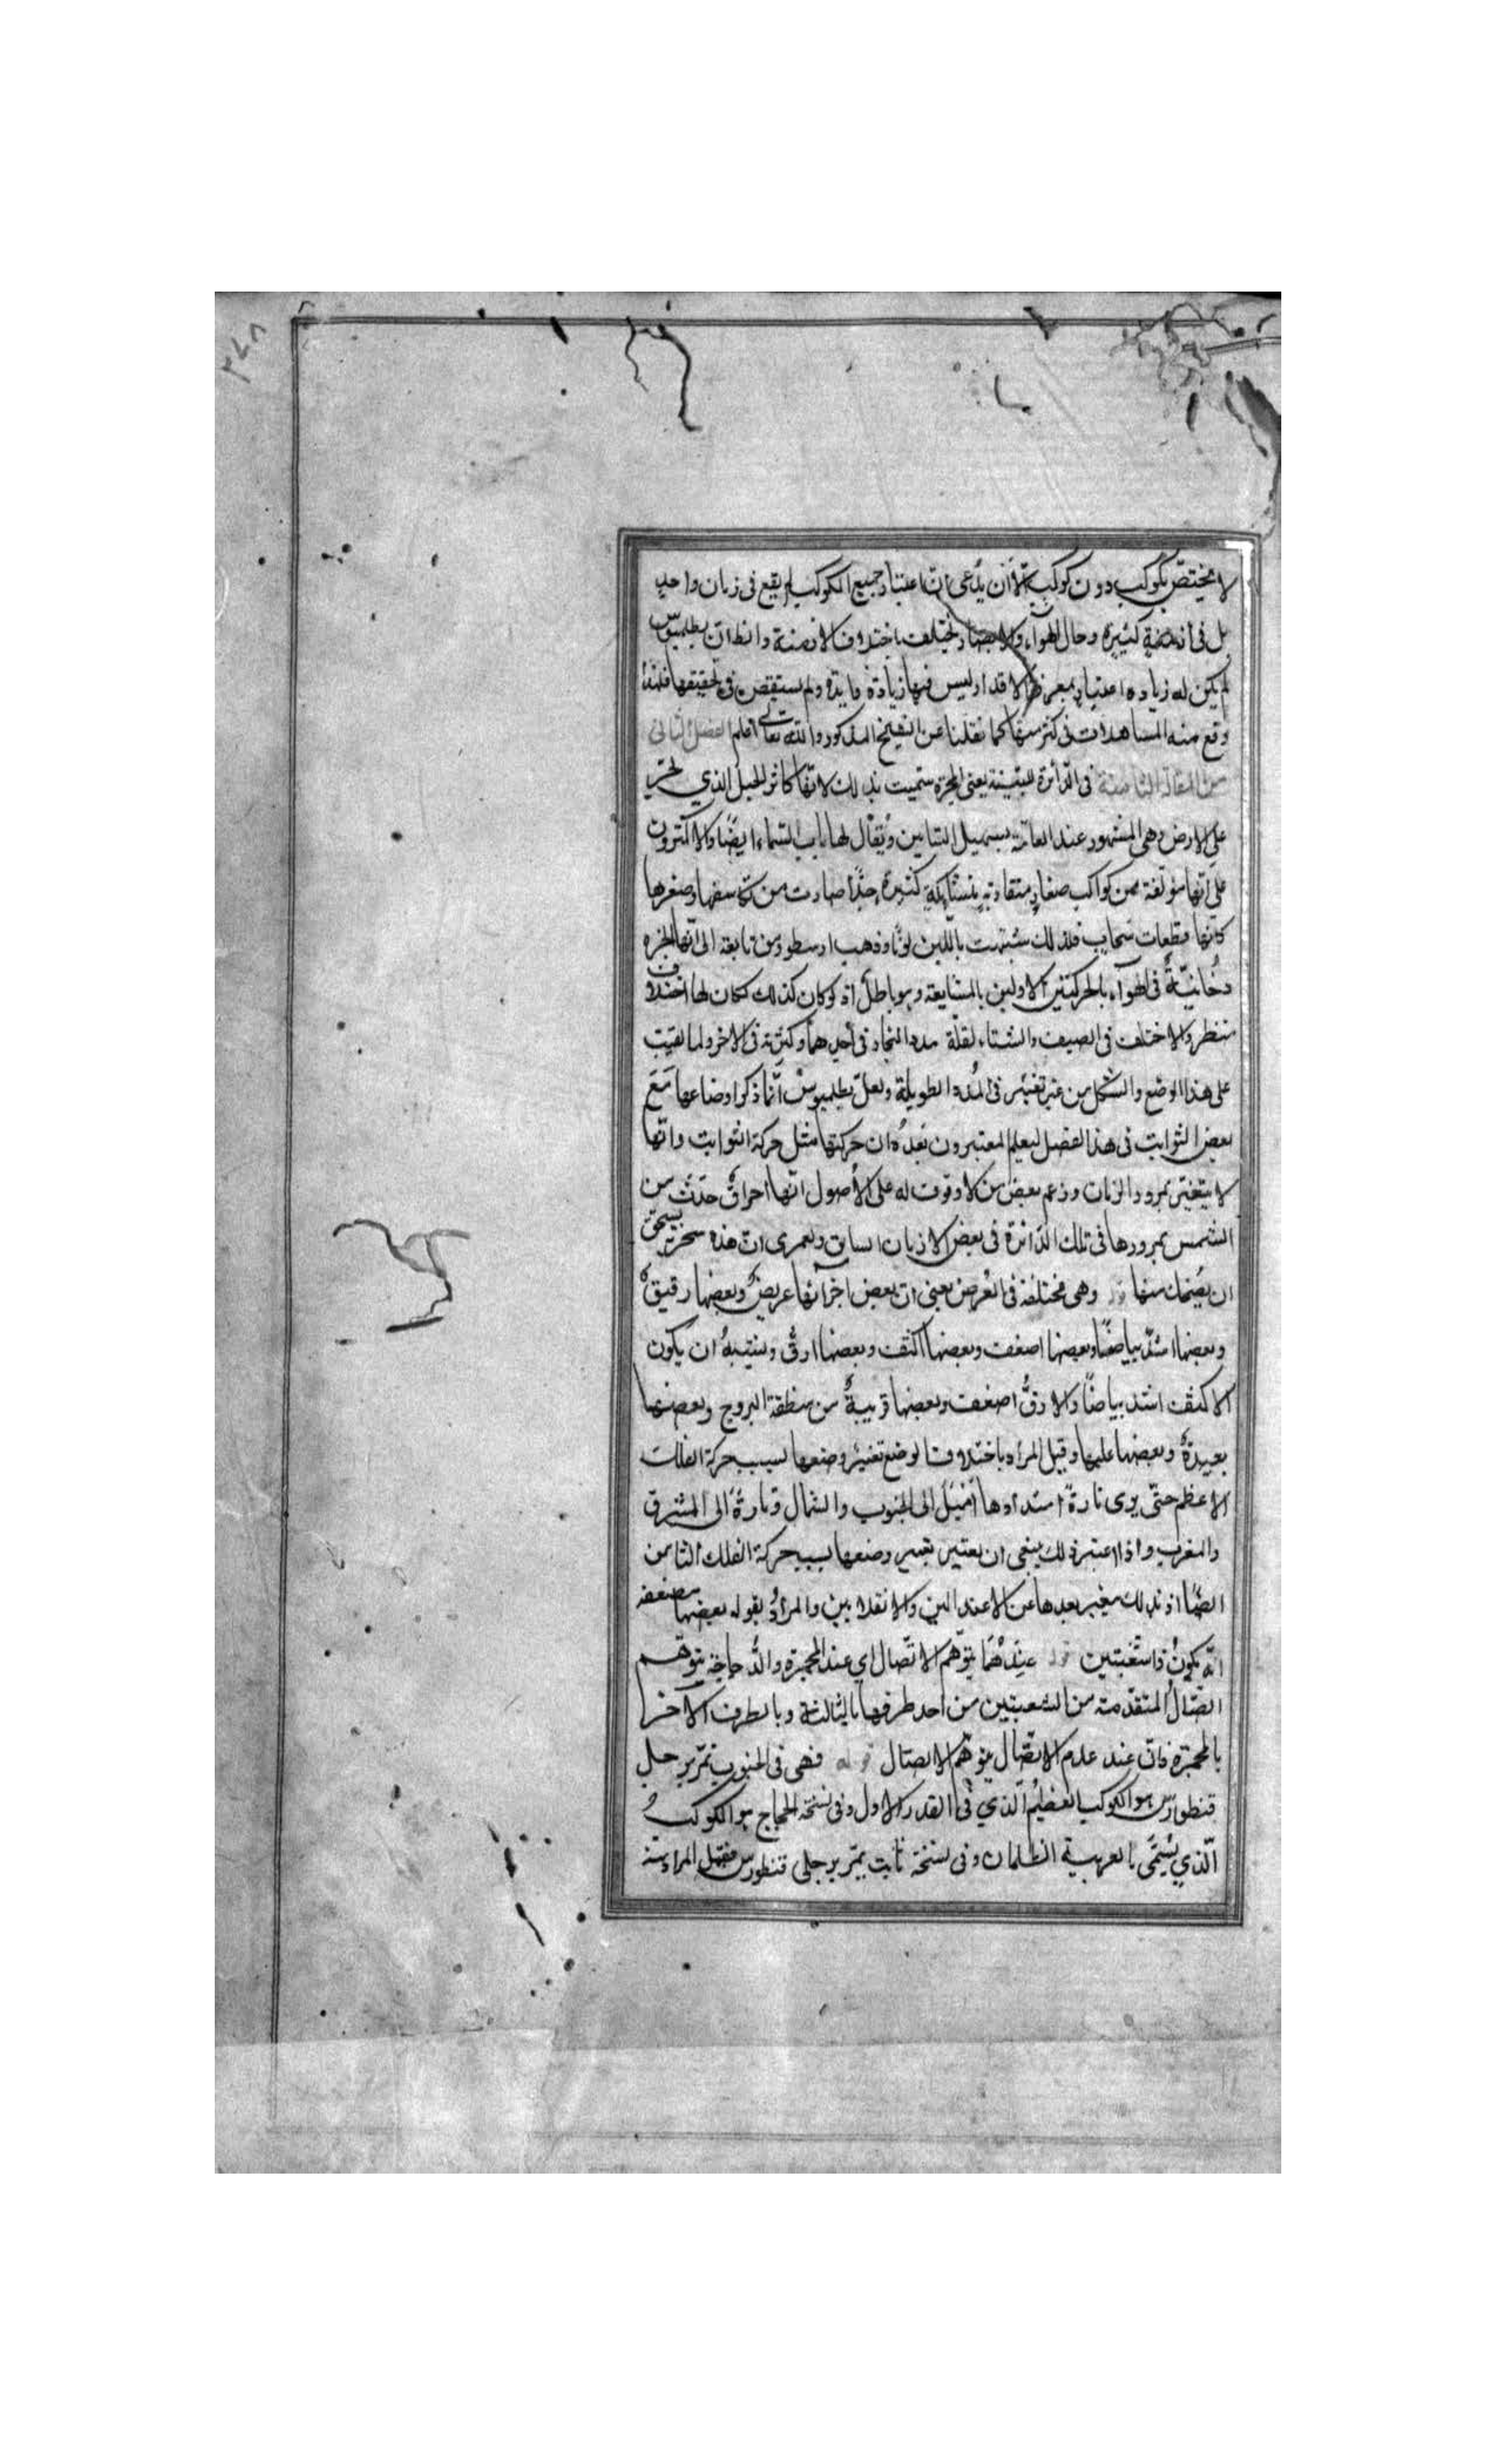 لا يختصّ بكوكب دون كوكب الّا أن يدّعى انّ اعتبار جميع الكوكب لم يقع فى زمان واحدٍ
بل فى أزمنةٍ كثيرة وحال الهوآء والابصار يختلف باختلاف الازمنة واظن انّ بطلميوس
لم يكن له زيادة اعتبارٍ بمعرفة الاقدار وليس فيها زيادة فايدة ولم يستقص فى تحقيقها فلهذا
وقع منه المساهلات فى كثر منها كما نقلنا عن الشيخ المذكور والله تعالى أعلم الفصل الثانى
من المقالة الثامنة فى الدّائرة اللبنية يعنى المجرّة سمّيت بذلك لانّها كاثر الحبل الذي يجرّ
على الارض وهى المشهور عند العامّة بسبيل التبانين ويُقال لها باب السّماء ايضًا والاكثرون
على انّها مؤلّفة من كواكب صغارٍ متقاربةٍ متشابكةٍ كثيرة جدًّا صارت من تكاثفها وصغرها
كانّها قطعات سَحابٍ فلذلك شبّهت باللّبن لونًا وذهب ارسطو ومن تابعه الى انّها ابخرة
دُخانيّةٌ فى الهوآء بالحركتين الاولين بالمشايعة وهو باطلٌ اذ لو كان كذلك لكان لها اختلاف
منظر ولاختلف فى الصيف والشتاء لقلّة مدد البخار فى أحدهما وكثرته فى الاخر ولما بقيت
على هذا الوضع والشكل من غير تغيّر فى المُدد الطويلة ولعلّ بطلميوسْ انّما ذكر اوضاعها مَعَ
بعض الثوابت فى هذا الفصل ليعلم المعتبرون بَعدهُ ان حركتها مثل حركة الثوابت وانّها
لا يتغيّر بمرور الزمان وزعم بعض من لا وقوف له على الأصول انّها احراقٌ حدَثَ من
الشمس بمرورها فى تلك الدّائرة فى بعض الازمان السابق ولعمرى انّ هذه سخرية يستحقّ
ان يُضحك منها قوله وهى مختلفة فى العُرض يعنى انّ بعض اجزآئها عريضٌ وبعضها رقيقٌ
وبعضها اشدّ بياضًا وبعضها اضعف وبعضها اكثف وبعضها ارقُّ ويشبهُ ان يكون
الاكثف اشدّ بياضًا والارقُّ اضعف وبعضها قريبةٌ من منطقة البروج وبعضها
بعيدةٌ وبعضها عليها وقيل المراد باختلاف الوضع تغيّر وضعها بسبب حركة الفلك
الاعظم حتّى يرى تارةً استدادها اَمْيَل الى الجنوب والشمال وتارةً الى المشرق
والمغرب واذا اعتبر ذلك ينبغى ان يعتبر تغيير وضعها بسبب حركة الفلك الثامن
ايضًا اذ بذلك يتغير بعدها عن الاعتدالين والانقلابين والمرادُ بقوله بعضها مضعفه
انّه يكونُ ذا شعبتين قوله عِندهُمَا يتوّهم الاتّصال اي عند المجرّة والدّجاجة يتوهّم
اتّصالُ المتقدّمة من الشعبتين من احد طرفها بالثالثة وبالطرف الآخر
بالمجرّة فان عند عدم الاتّصال يتوّهم الاتصال قوله فهى فى الجنوب تمرّ برجلى
قنطورس هو الكوكب العظيمُ الّذي فى القدر الاول وفى نسخة الحجاج هو الكوكبُ
الّذي يُسَمّى بالعربية الظلمان وفى نسخة ثابت يمرّ برجلى قنطورس فقيل المراد منه